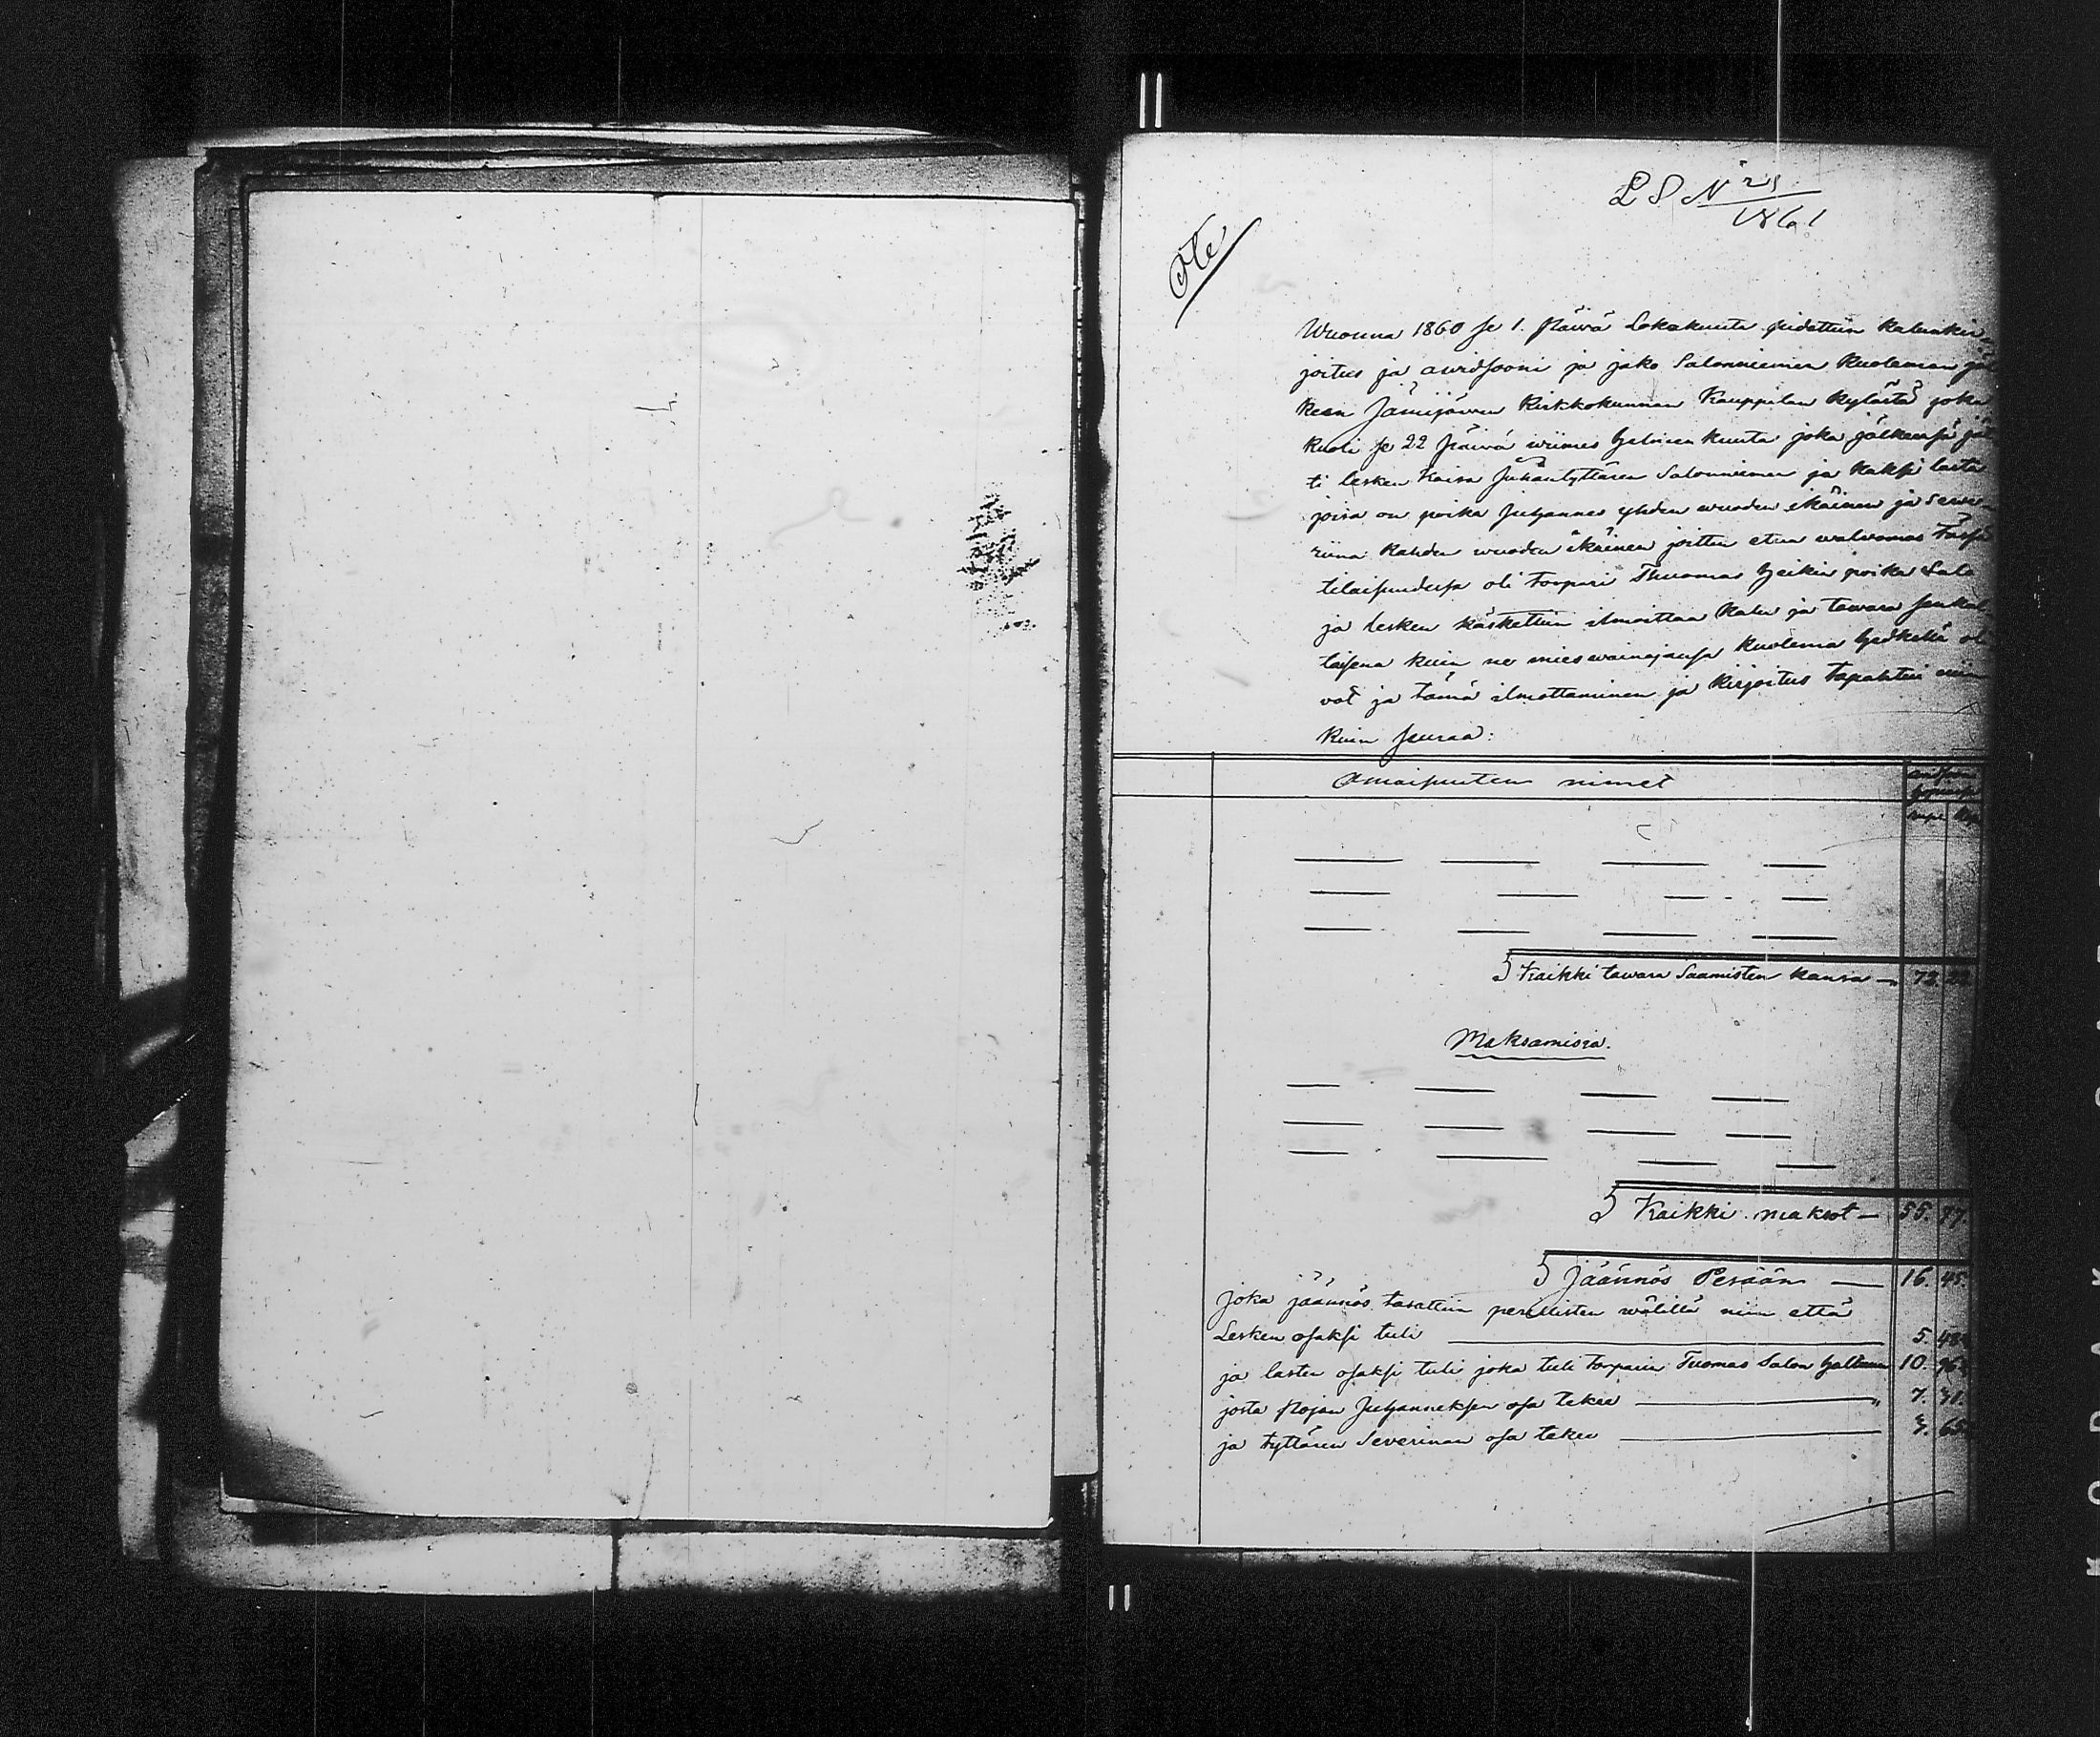 L S N 21
1861
Ote
Wuonna 1860 se 1. Päivä Lokakuuta pidettiin kalunkir=
joitus ja auridsooni ja jako Salonniemen kuoleman jäl
keen Jämijärven Kirkkokunnan Kauppilan kylästä joka
kuoli se 22 Päivä wiimes helmeen kuuta joka jälkeensä jät
ti lesken Kaisa Juhantyttären Salonniemen ja kaksi lasta
joisa on poika Juhannes yhden wuoden ikäinen ja Seve=
riina kahden wuoden ikäinen joitten etua walwomas Täsä
tilaisuudesa oli torpari Thuomas Heikin poika Salo
ja lesken käskettiin ilmoittaa kalu ja tawara senkal
taisena kuin ne mieswainajansa kuolema hedkellä oli
vat ja tämä ilmottaminen ja kirjoitus tapahtui niin
kuin seuraa:
Omaisuuten nimet
Kaikki tawara Saamisten kansa — 72. 22
Maksamisia.
Kaikki maksot — 55. 77.
Jäännös Perään — 16. 45.
Joka jäännös tasattiin perillisten wälillä niin että
Lesken osaksi tuli 5. 48
ja lasten osaksi tuli joka tuli torparin Tuomas Salon haltuun 10. 96
josta Pojan Juhanneksen osa tekee 7. 31.
ja tyttären Severinan osa tekee 3. 65